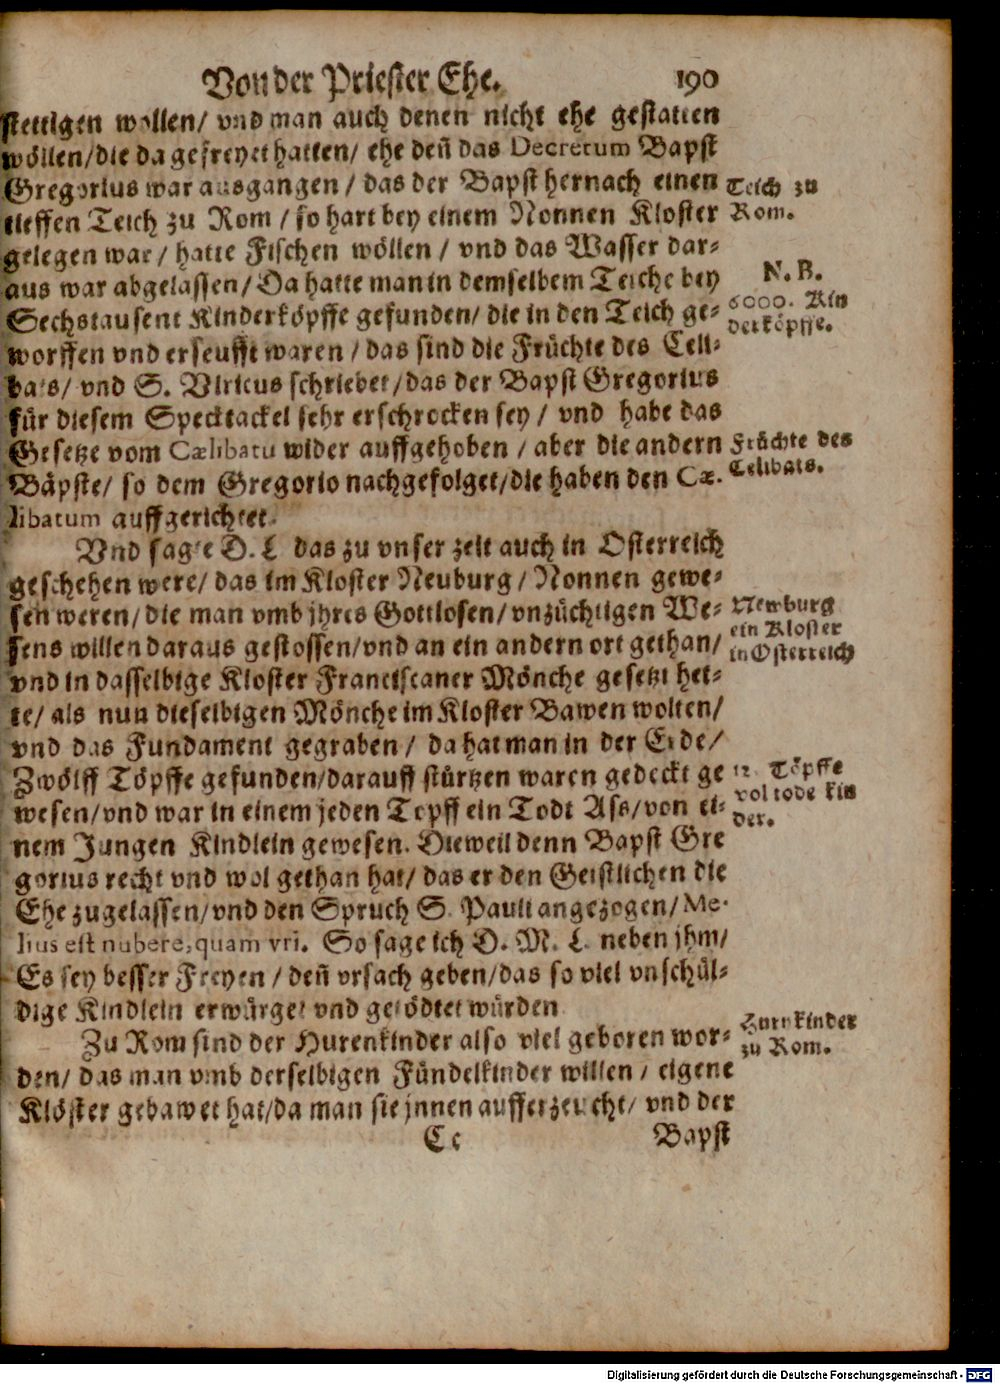 Von der Priester Ehe. 190
stettigen wollen/ vnd man auch denen nicht ehe gestatten
wöllen/die da gefreyet hatten/ ehe deñ das Decretum Bapst
Gregorius war ausgangen/ das der Bapst hernach einen
tieffen Teich zu Rom/ so hart bey einem Nonnen Kloster
gelegen war/ hatte Fischen wöllen/ vnd das Wasser dar-
aus war abgelassen/ Da hatte man in demselbem Teiche bey
Sechstausent Kinderköpffe gefunden/ die in den Teich ge-
worffen vnd erseufft waren/ das sind die Früchte des Celi-
bats/ vnd S. Vlricus schriebet/das der Bapst Gregorius
für diesem Specktackel sehr erschrocken sey/ vnd habe das
Gesetze vom Cælibatu wider auffgehoben/ aber die andern
Bäpste/ so dem Gregorio nachgefolget/die haben den Cæ-
libatum auffgerichtet.
Vnd sagte D. L. das zu vnser zeit auch in Osterreich
geschehen were/ das im Kloster Neuburg/ Nonnen gewe-
sen weren/die man vmb jhres Gottlosen/vnzüchtigen We-
sens willen daraus gestossen/vnd an ein andern ort gethan/
vnd in dasselbige Kloster Franciscaner Mönche gesetzt het-
te/ als nun dieselbigen Mönche im Kloster Bawen wolten/
vnd das Fundament gegraben/ da hat man in der Erde/
Zwölff Töpffe gefunden/darauff stürtzen waren gedeckt ge
wesen/vnd war in einem jeden Topff ein Todt Ass/von ei-
nem Jungen Kindlein gewesen. Dieweil denn Bapst Gre
gorius recht vnd wol gethan hat/ das er den Geistlichen die
Ehe zugelassen/vnd den Spruch S. Pauli angezogen/Me-
lius est nubere, quam vri. So sage ich D. M. L. neben jhm/
Es sey besser Freyen/ deñ vrsach geben/das so viel vnschül-
dige Kindlein erwürget vnd getödtet würden
Zu Rom sind der Hurenkinder also viel geboren wor-
den/ das man vmb derselbigen Fündelkinder willen/ eigene
Klöster gebawet hat/da man sie jnnen aufferzeucht/ vnd der
Cc Bapst
Teich zu
Rom.
N. B.
6000. Kin
derköpffe.
Früchte des
Celibats.
Newburg
ein Kloster
in Osterreich
12. Töpffe
vol tode kin
der.
Hurnkinder
zu Rom.
Digitalisierung gefördert durch die Deutsche Forschungsgemeinschaft - DFG